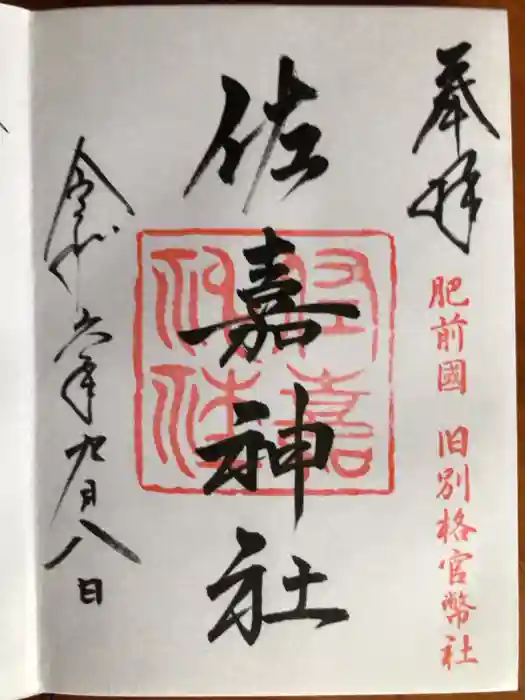 奉拝
肥前國 旧別格官幣社
佐嘉神社
令和六年九月八日